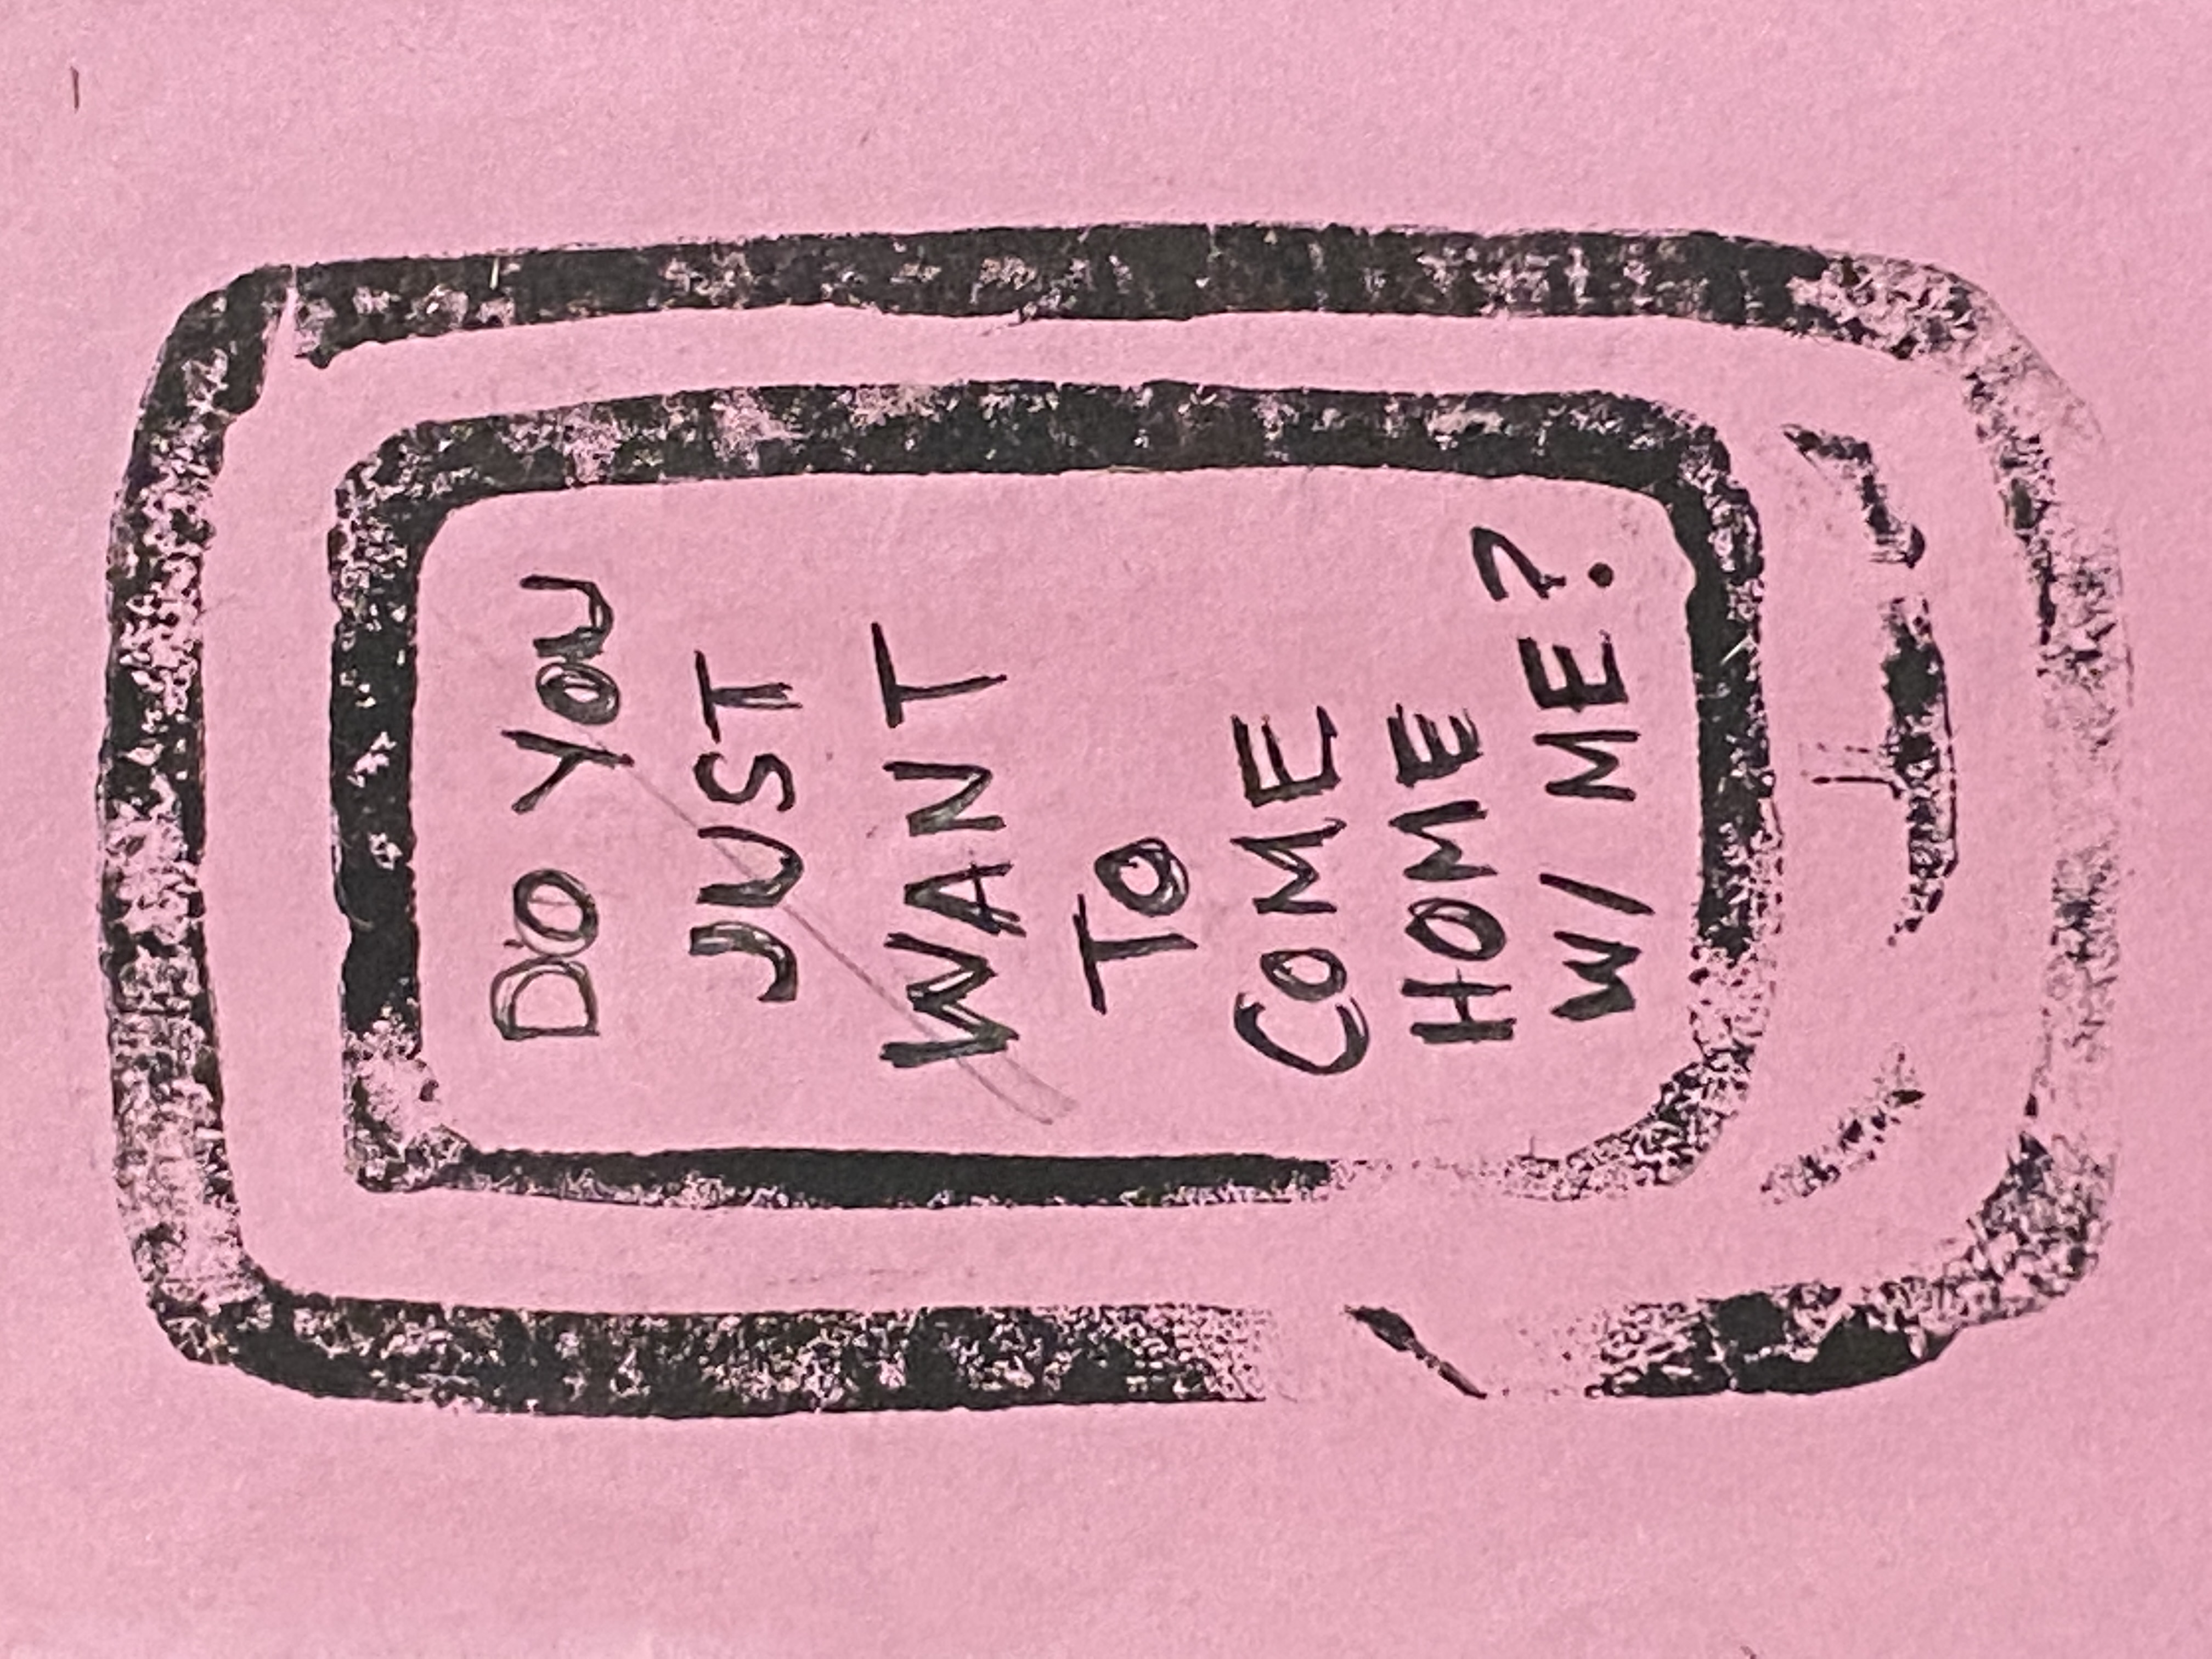 DO YOU
JUST
WANT
TO
COME
HOME
W/ ME?